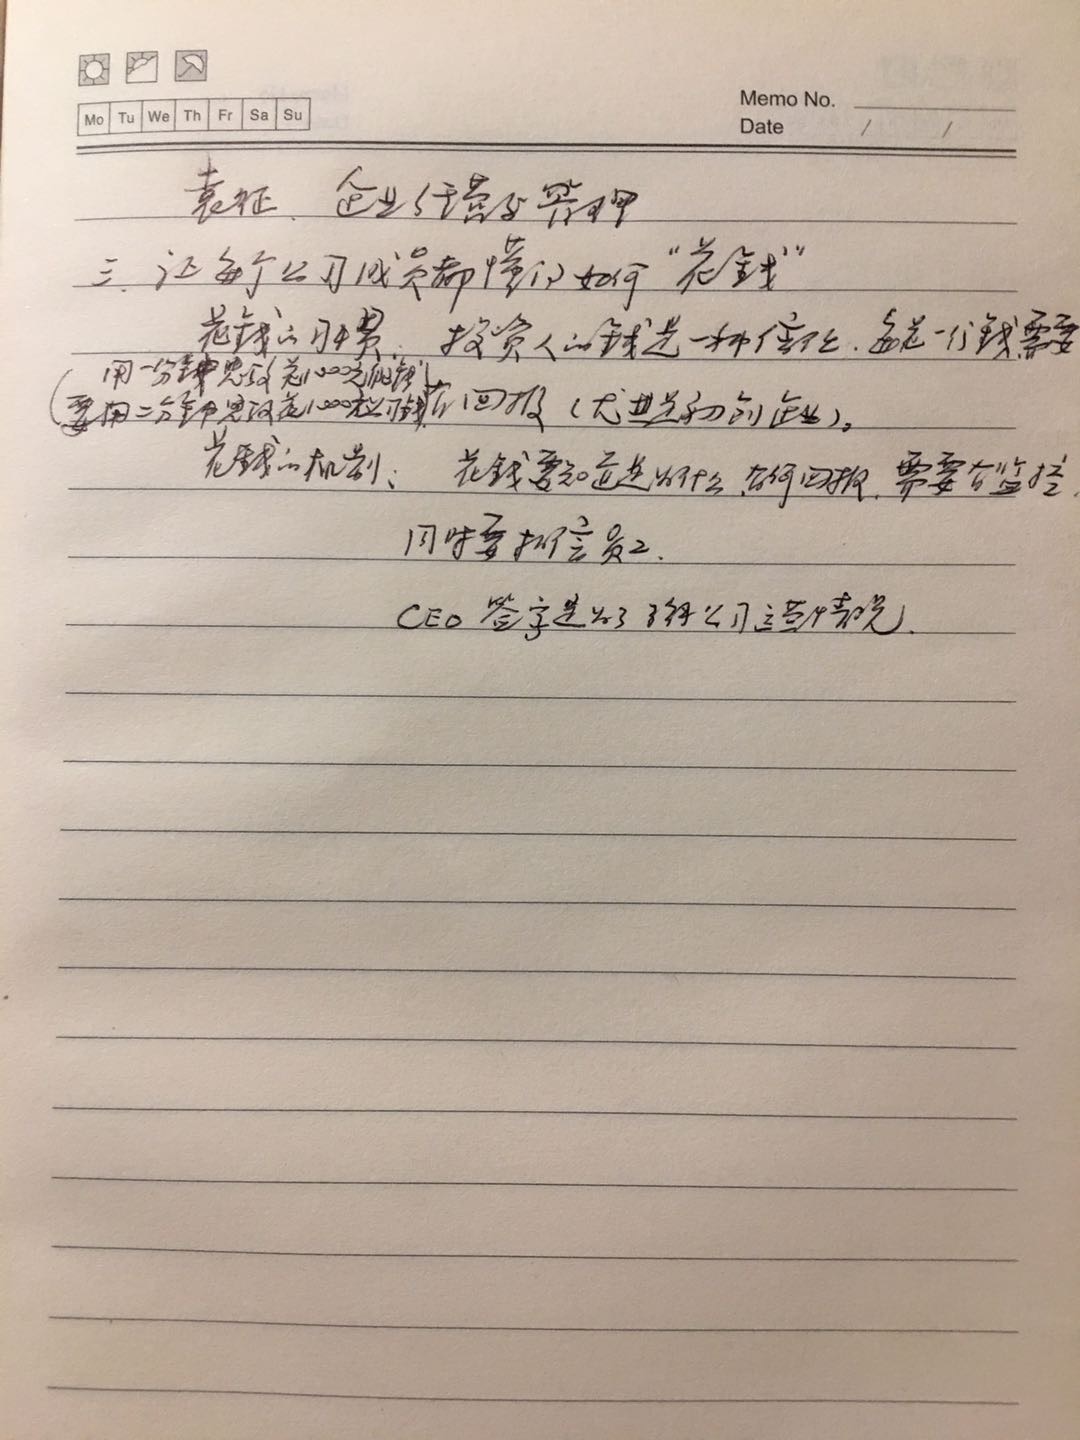 Mo Tu We Th Fr Sa Su
Memo No.
Date / /
袁征. 企业经营与管理
三. 让每个公司成员都懂得如何“花钱”
花钱的习惯. 投资人的钱是一种信任. 每花一分钱需要
(用一分钟思考花1000元的钱
要用二分钟思考花1000元以下钱) 有回报 (尤其是初创企业)。
花钱的机制: 花钱要知道是为什么. 有何回报. 需要有监控.
同时要相信员工.
CEO 签字是为了了解公司运营情况.